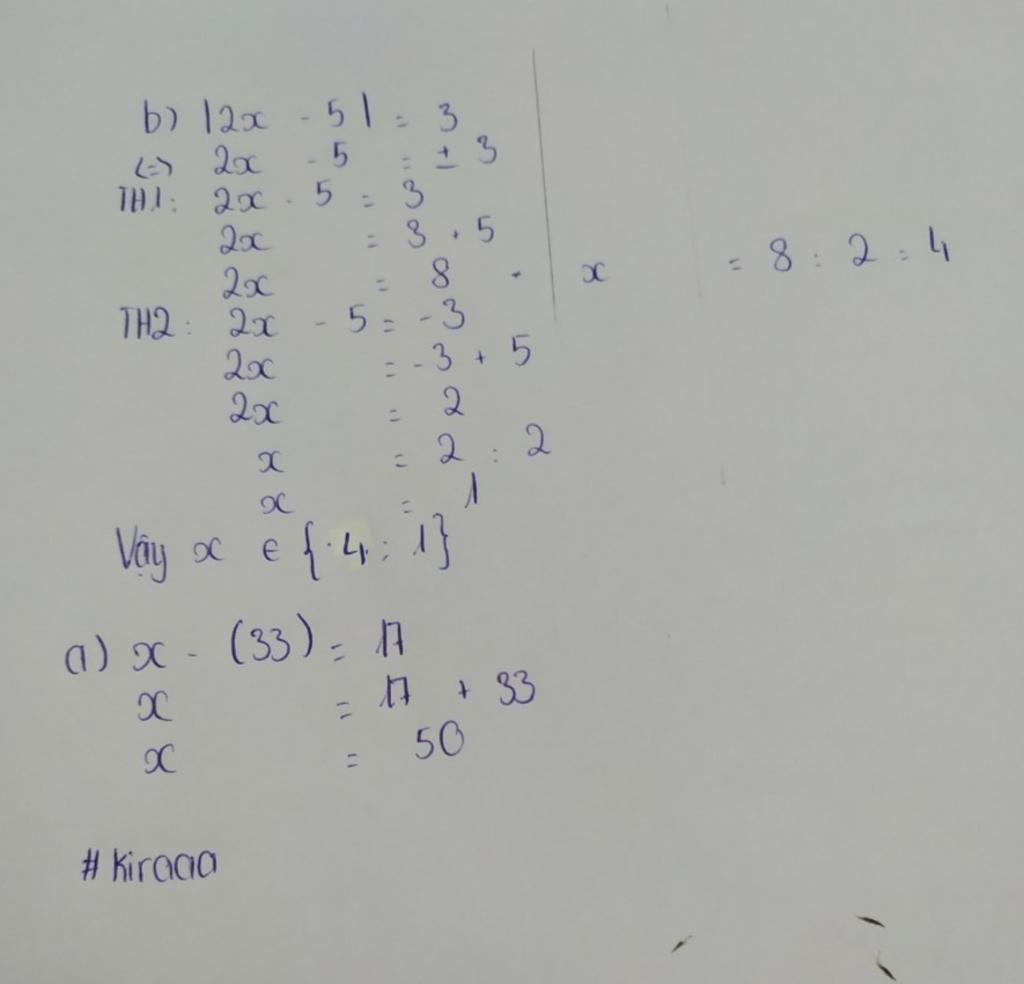 b) |2x - 5| = 3
<=> 2x - 5 = ± 3
TH1: 2x - 5 = 3
2x = 3 + 5
2x = 8
x = 8 : 2 = 4
TH2: 2x - 5 = -3
2x = -3 + 5
2x = 2
x = 2 : 2
x = 1
Vậy x ∈ {4; 1}
a) x - (33) = 17
x = 17 + 33
x = 50
# Kiraaa